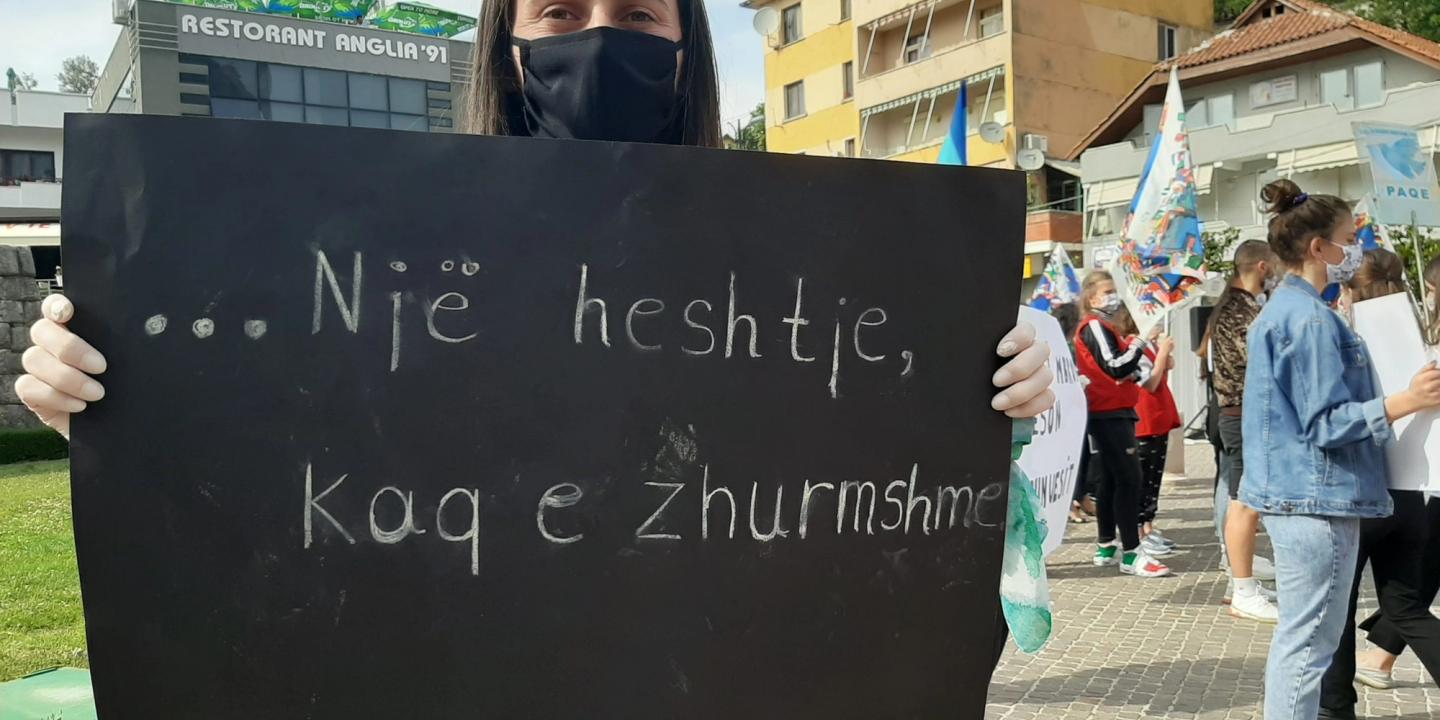 RESTORANT ANGLIA '91
...Një heshtje,
kaq e zhurmshme.
PAQE